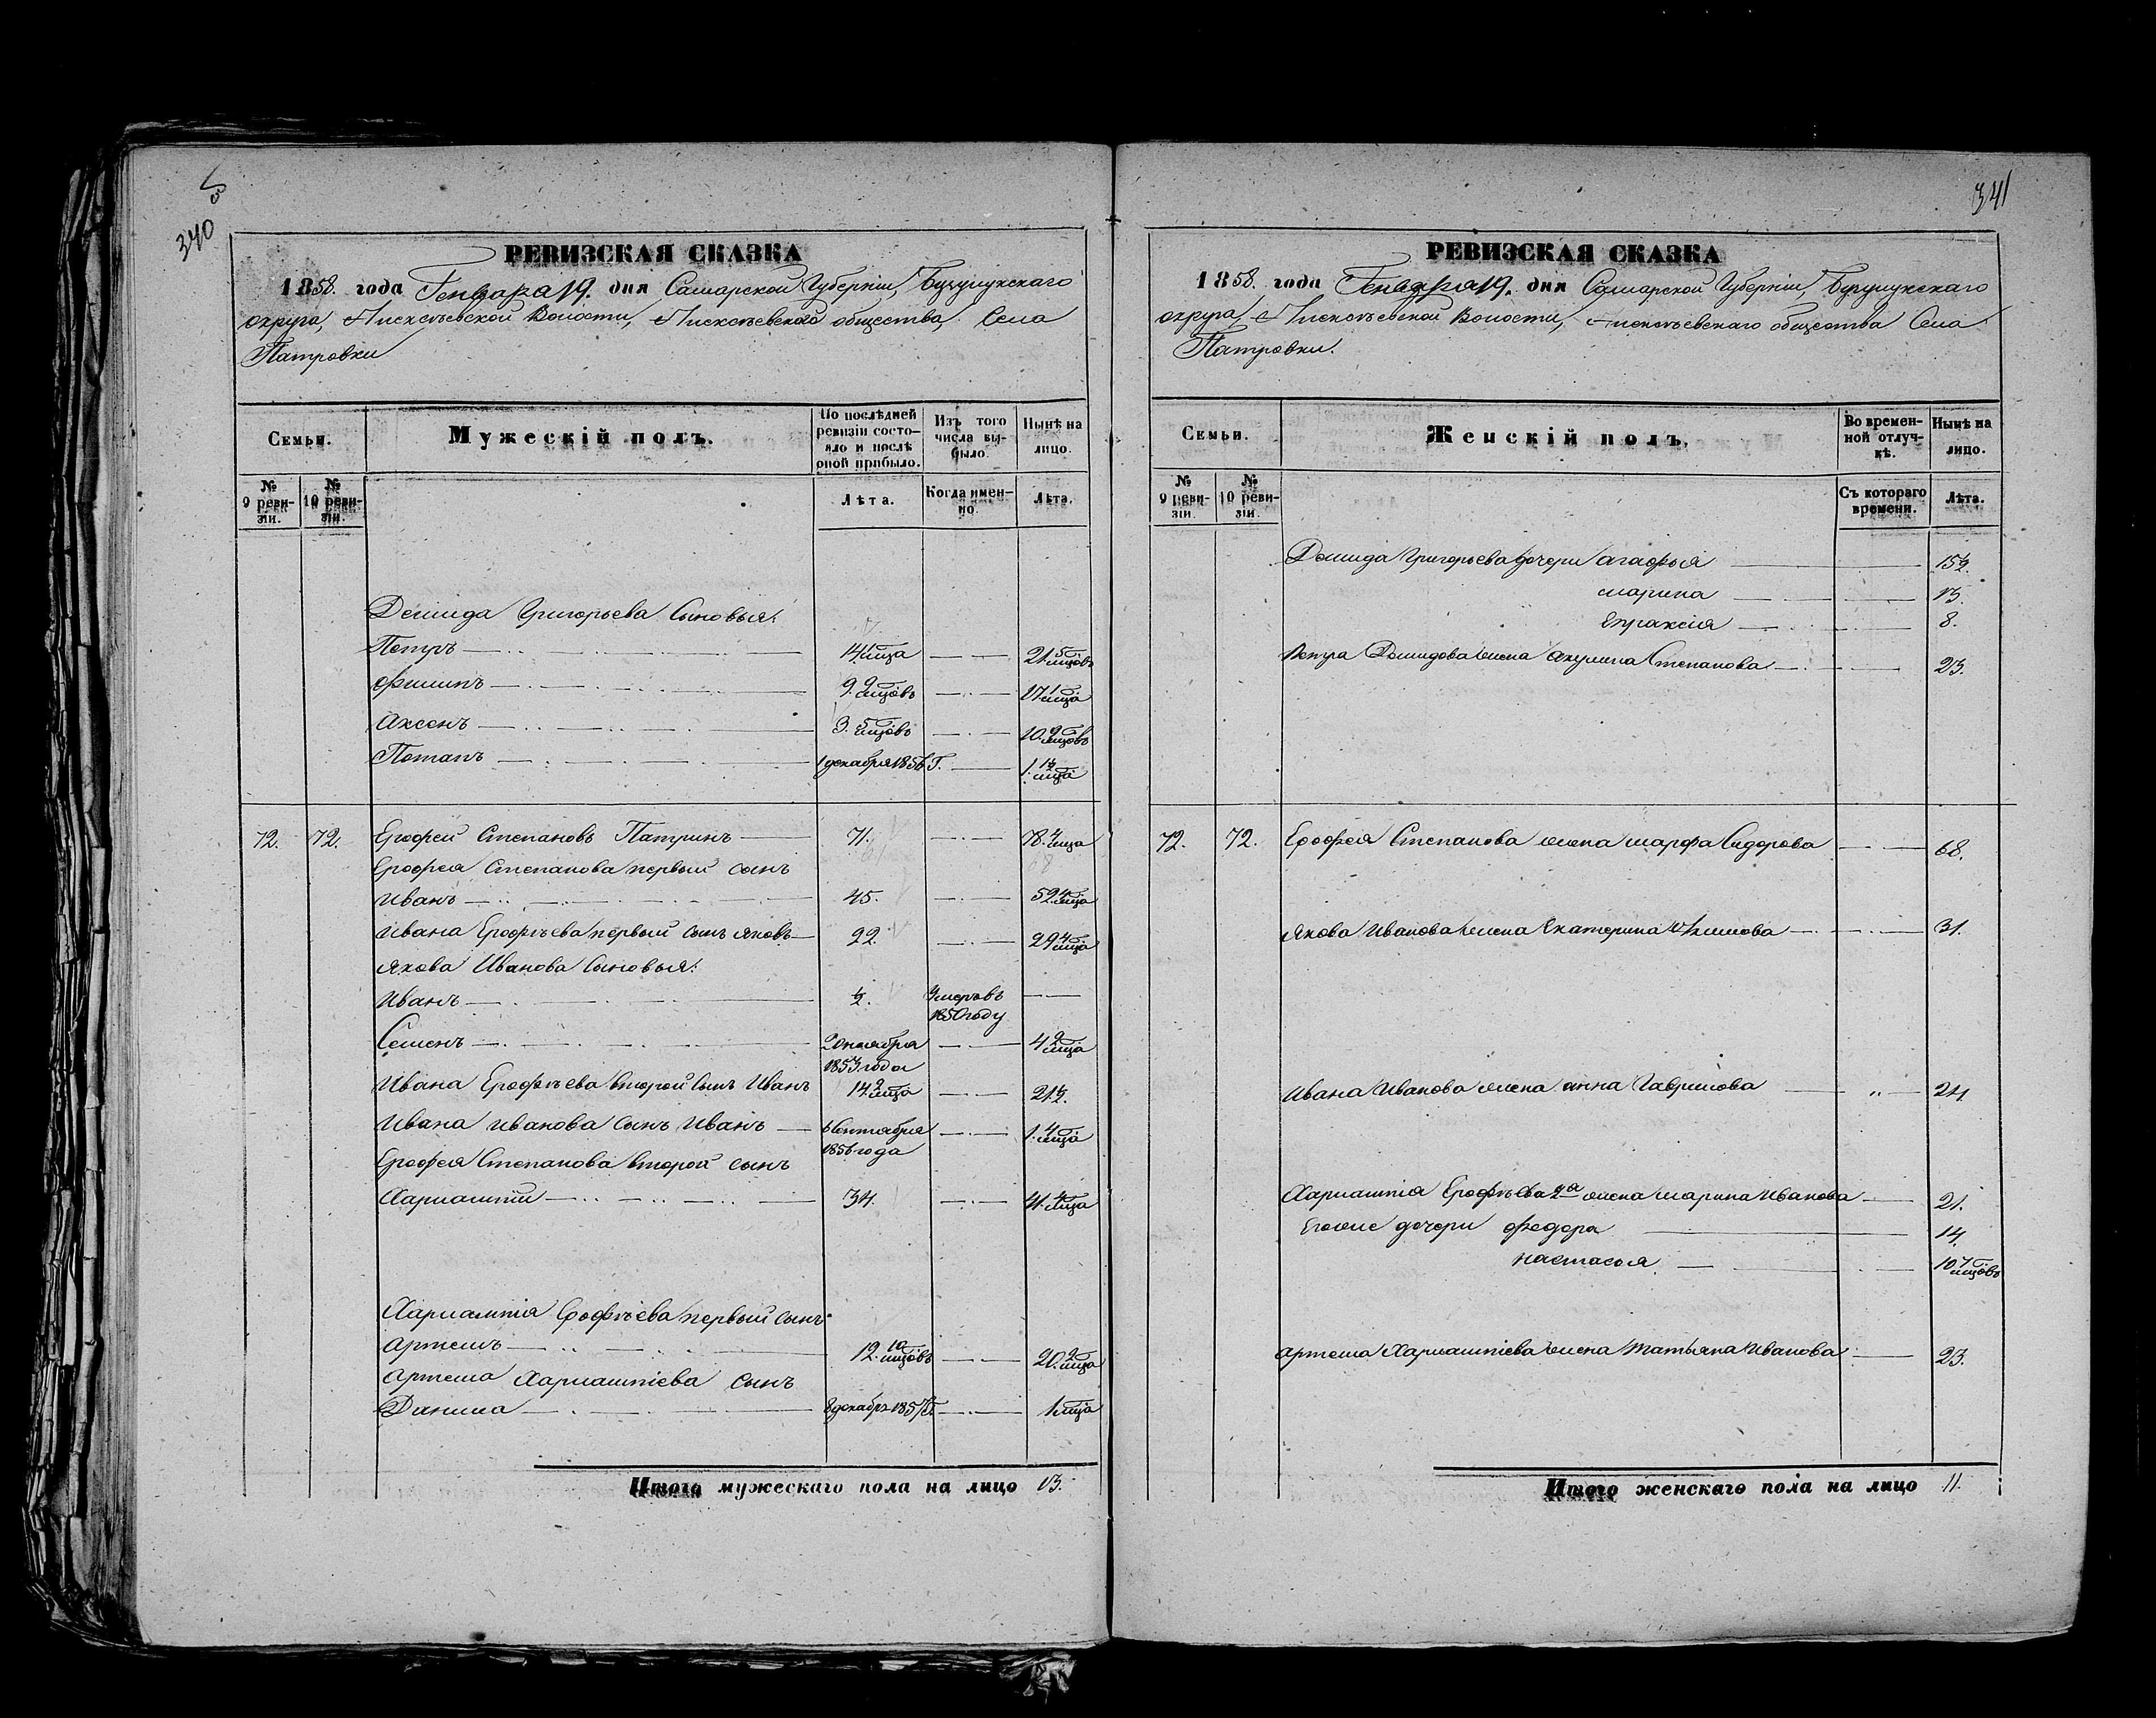 5
340
РЕВИЗСКАЯ СКАЗКА
1858. года Генваря 19. дня Самарской Губерніи, Бузулукскаго
округа, Алексѣевской Волости, Алексѣевскаго общества, Села
Патровки
Семьи.
Мужескій полъ.
По послѣдней ревизіи состояло и послѣ оной прибыло.
Изъ того числа выбыло.
Нынѣ на лицо.
№ 9 ревизіи.
№ 10 ревизіи.
Лѣта.
Когда именно.
Лѣта.
Демида Григорьева Сыновья:
Петръ 14. 1 мца 21. 5 мцовъ
Филипъ 9. 9 мцовъ 17. 1 мца
Аксенъ 3. 5 мцовъ 10. 9 мцовъ
Потапъ 1 декабря 1856 Г. 1. 1½ мца
72. 72. Ерофей Степановъ Патринъ 71. 78. 4 мца
Ерофея Степанова первый сынъ
Иванъ 45. 52. 4 мца
Ивана Ерофѣева первый сынъ Яковъ 22. 29. 4 мца
Якова Иванова Сыновья:
Иванъ ½. Умеръ въ 1850 году
Семенъ 2 октября 1853 года 4. 2 мца
Ивана Ерофѣева второй сынъ Иванъ 14. 2 мца 21½.
Ивана Иванова сынъ Иванъ 6 Сентября 1856 года 1. 4 мца
Ерофея Степанова второй сынъ
Харлампій 34. 41. 4 мца
Харлампія Ерофѣева первый сынъ
Артемъ 12. 10 мцовъ 20. 2 мца
Артема Харлампіева сынъ
Данила 8 декабр. 1857 г. 1 мца
Итого мужескаго пола на лицо 13.
341
РЕВИЗСКАЯ СКАЗКА
1858. года Генваря 19. дня Самарской Губерніи, Бузулукскаго
округа, Алексѣевской Волости, Алексѣевскаго общества Села
Патровки.
Семьи.
Женскій полъ.
Во временной отлучкѣ.
Нынѣ на лицо.
№ 9 ревизіи.
№ 10 ревизіи.
Съ котораго времени.
Лѣта.
Демида Григорьева дочери Агафья 15½.
Марина 13.
Епраксія 8.
Петра Демидова жена Акулина Степанова 23.
72. 72. Ерофея Степанова жена Марфа Сидорова 68.
Якова Иванова жена Екатерина 31.
Ивана Иванова жена Анна Гаврилова „ 24.
Харлампія Ерофѣева 2а жена Марина Иванова 21.
Егоже дочери Федора 14.
Настасья 10. 7 мцовъ
Артема Харлампіева жена Татьяна Иванова 23.
Итого женскаго пола на лицо 11.